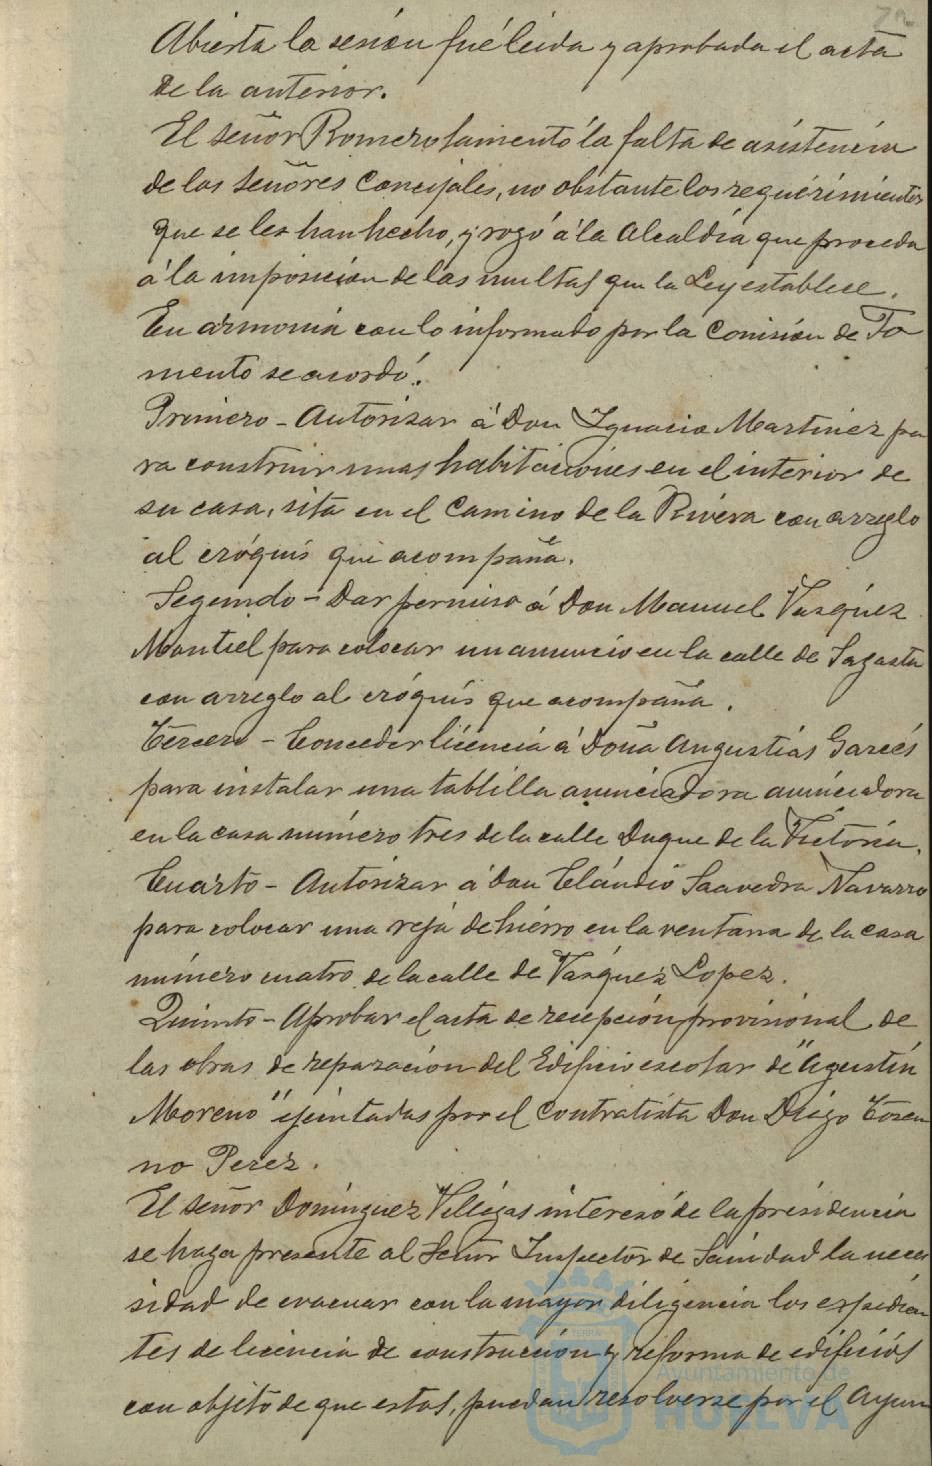 Abierta la sesión fué leida y aprobada el acta
de la anterior.
El señor Romero lamentó la falta de asistencia
de los señores Concejales, no obstante los requerimientos
que se les han hecho, y rogó á la Alcaldía que proceda
á la imposición de las multas que la Ley establece.
En armonia con lo informado por la Comisión de Fo
mento se acordó:
Primero - Autorizar á Don Ignacio Martinez pa
ra construir unas habitaciones en el interior de
su casa, sita en el Camino de la Rivera con arreglo
al cróquis que acompaña.
Segundo - Dar permiso á Don Manuel Vasquez
Montiel para colocar un anuncio en la calle de Sagasta
con arreglo al cróquis que acompaña.
Tercero - Conceder licencia á Doña Angustias Garcés
para instalar una tablilla anunciadora anunciadora
en la casa número tres de la calle Duque de la Victoria.
Cuarto - Autorizar á Don Cláudio Saavedra Navarro
para colocar una reja de hierro en la ventana de la casa
número cuatro de la calle de Vasquez Lopez.
Quinto - Aprobar el acta de recepción provisional de
las obras de reparación del Edificio escolar de "Agustin
Moreno" ejecutadas por el contratista Don Diego
no Perez.
El señor Dominguez Villegas interesó de la presidencia
se haga presente al Señor Inspector de Sanidad la nece
sidad de evacuar con la mayor diligencia los expedien
tes de licencia de construcción y reforma de edificios
con objeto de que estos, puedan resolverse por el Ayun
Ayuntamiento de
HUELVA